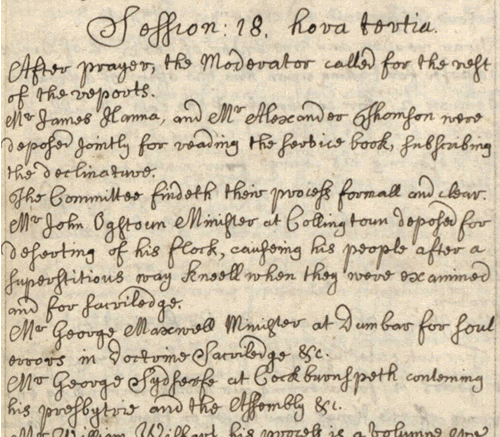 Session: 18. hora tertia.
After prayer, the Moderator called for the rest
of the reports.
Mr James Hanna, and Mr Alexander Thomson were
deposed jointly for reading the service book, subscribing
the declinature.
The Committee findeth their process formall and clear.
Mr John Ogstoun Minister at Collingtoun deposed for
deserting of his flock, causeing his people after a
superstitious way kneell when they were examined
and for sacriledge.
Mr George Maxwell Minister at Dunbar for foul
errors in doctrine Sacriledge &c.
Mr George Sydserfe at Cockburnspeth contemning
his presbytrie and the Assembly &c.
Mr William his process is a volumne